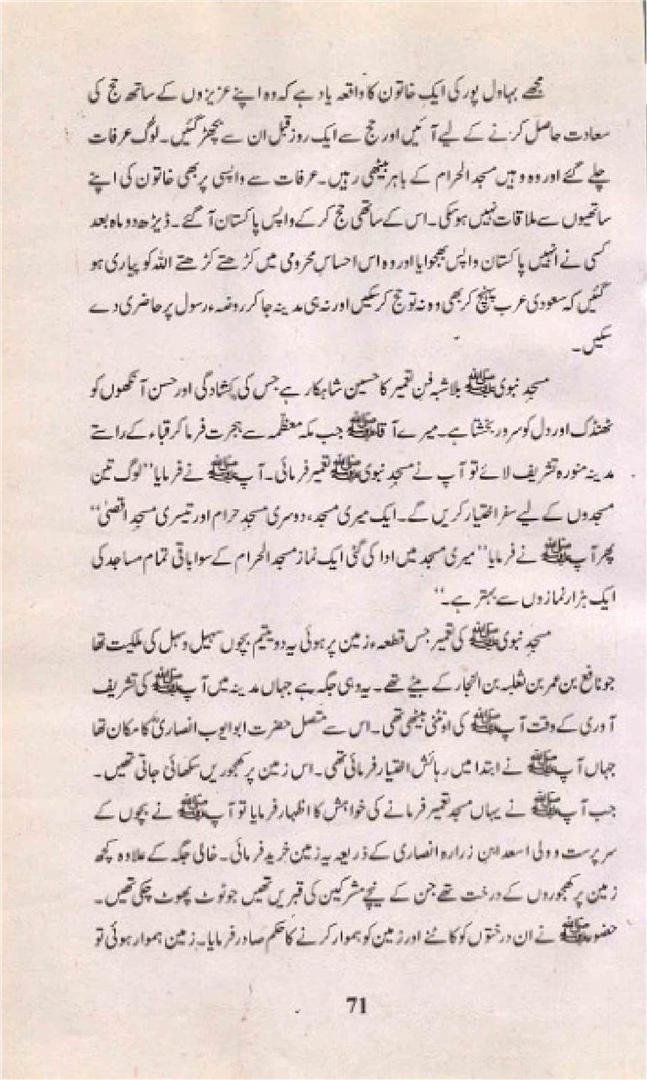 مجھے بہاول پور کی ایک خاتون کا واقعہ یاد ہے کہ وہ اپنے عزیزوں کے ساتھ حج کی
سعادت حاصل کرنے کے لیے آئیں اور حج سے ایک روز قبل ان سے بچھڑ گئیں۔ لوگ عرفات
چلے گئے اور وہ وہیں مسجد الحرام کے باہر بیٹھی رہیں۔ عرفات سے واپسی پر بھی خاتون کی اپنے
ساتھیوں سے ملاقات نہیں ہو سکی۔ اس کے ساتھی حج کر کے واپس پاکستان آ گئے۔ ڈیڑھ دو ماہ بعد
کسی نے انہیں پاکستان واپس بھجوایا اور وہ اس احساسِ محرومی میں کڑھتے کڑھتے اللہ کو پیاری ہو
گئیں کہ سعودی عرب پہنچ کر بھی وہ نہ تو حج کر سکیں اور نہ ہی مدینہ جا کر روضہء رسول پر حاضری دے
سکیں۔
مسجدِ نبوی ﷺ بلاشبہ فنِ تعمیر کا حسین شاہکار ہے جس کی کشادگی اور حسن آنکھوں کو
ٹھنڈک اور دل کو سرور بخشتا ہے۔ میرے آقا ﷺ جب مکہ معظّمہ سے ہجرت فرما کر قباء کے راستے
مدینہ منورہ تشریف لائے تو آپ نے مسجدِ نبوی ﷺ تعمیر فرمائی۔ آپ ﷺ نے فرمایا ’’لوگ تین
مسجدوں کے لیے سفر اختیار کریں گے۔ ایک میری مسجد، دوسری مسجدِ حرام اور تیسری مسجدِ اقصیٰ‘‘
پھر آپ ﷺ نے فرمایا ’’میری مسجد میں ادا کی گئی ایک نماز مسجد الحرام کے سوا باقی تمام مساجد کی
ایک ہزار نمازوں سے بہتر ہے۔‘‘
مسجدِ نبوی ﷺ کی تعمیر جس قطعہء زمین پر ہوئی یہ دو یتیم بچوں سہیل و سہل کی ملکیت تھا
جو نافع بن عمر بن ثعلبہ بن النجار کے بیٹے تھے۔ یہ وہی جگہ ہے جہاں مدینہ میں آپ ﷺ کی تشریف
آوری کے وقت آپ ﷺ کی اونٹنی بیٹھی تھی۔ اس سے متصل حضرت ابو ایوب انصاریؓ کا مکان تھا
جہاں آپ ﷺ نے ابتدا میں رہائش اختیار فرمائی تھی۔ اس زمین پر کھجوریں سکھائی جاتی تھیں۔
جب آپ ﷺ نے یہاں مسجد تعمیر فرمانے کی خواہش کا اظہار فرمایا تو آپ ﷺ نے بچوں کے
سرپرست و ولی اسعد ابن زرارہ انصاری کے ذریعہ یہ زمین خرید فرمائی۔ خالی جگہ کے علاوہ کچھ
زمین پر کھجوروں کے درخت تھے جن کے نیچے مشرکین کی قبریں تھیں جو ٹوٹ پھوٹ چکی تھیں۔
حضور ﷺ نے ان درختوں کو کاٹنے اور زمین کو ہموار کرنے کا حکم صادر فرمایا۔ زمین ہموار ہوئی تو
71